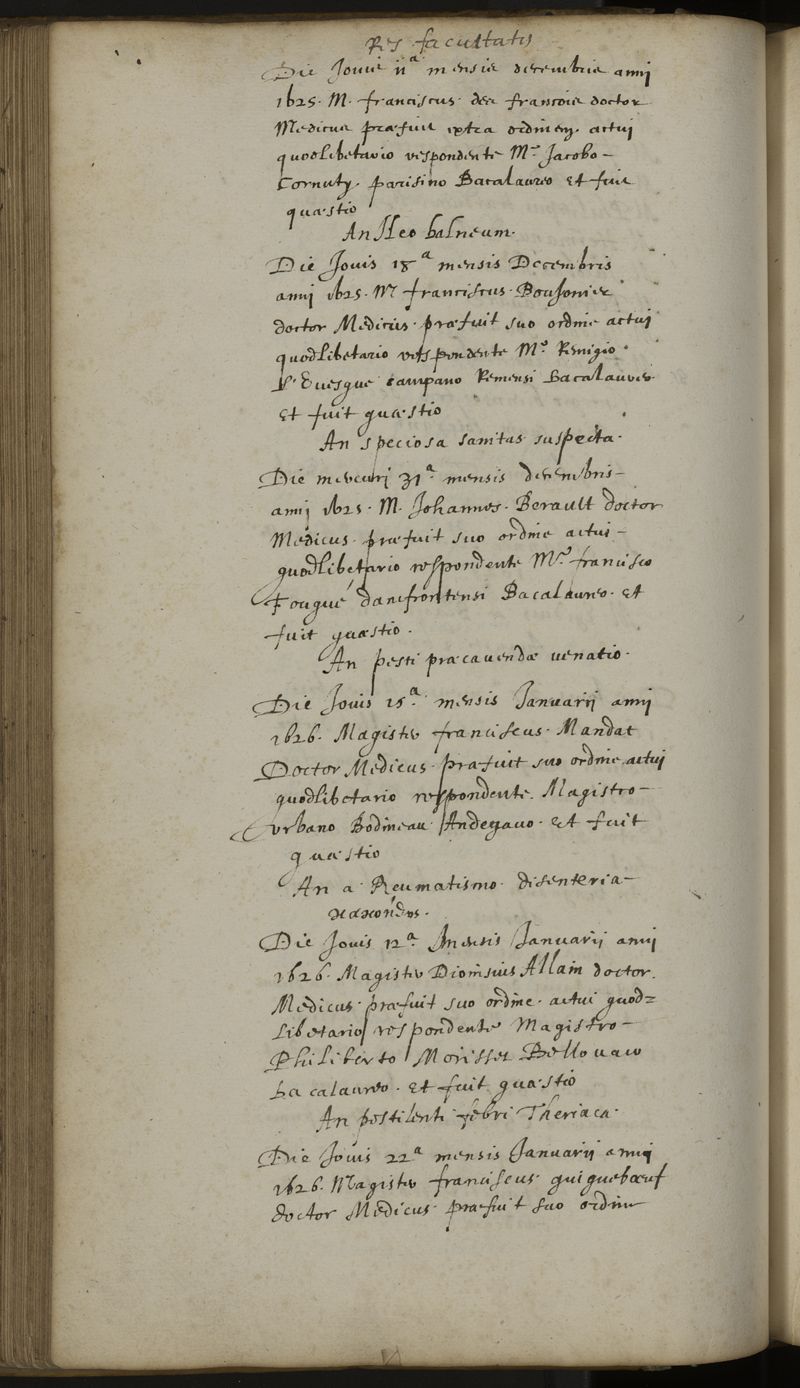 Res facultatis
Die Jouis 11ᵃ mensis decembris annj
1625. M. franciscus des francois doctor
Medicus præfuit extra ordinem. actuj
quodlibetario respondente Mʳᵒ Jacobo -
Cornuty. parisino Bacalaureo et fuit
quæstio
An Ileo balneum.
Die Jouis 18ᵃ mensis Decembris
annj 1625. Mʳ franciscus. Boujonier
doctor Medicus. præfuit suo ordine actuj
quodlibetario respondente Mᵒ Remigio
L'Euesque campano Remensi Bacalaureo
et fuit quæstio
An speciosa sanitas suspecta.
Die mercurj 31ᵃ mensis decembris -
annj 1625. M. Johannes. Berault doctor
Medicus. præfuit suo ordine actui -
quodlibetario respondente Mʳᵒ francisco
Fougué damfrontensi Bacalaureo. et
fuit quæstio.
An pesti præcauendæ uenatio.
Die Jouis 15ᵃ mensis Januarij annj
1626. Magister franciscus. Mandat
Doctor Medicus. præfuit suo ordine actuj
quodlibetario respondente. Magistro -
vrbano Bodineau Andegauo. et fuit
quæstio
An a Reumatismo disenteria -
κακοήθης.
Die Jouis 12ᵃ mensis Januarij annj
1626. Magister Dionisius Allain doctor.
Medicus. præfuit suo ordine. actui quod=
libetario respondente Magistro -
Philiberto Morisset Bellouaco
bacalaureo. et fuit quæstio
An pestilenti febri Theriaca.
Die Jouis 22ᵃ mensis Januarij annj
1626. Magister franciscus guiguebœuf
doctor Medicus. præfuit suo ordine